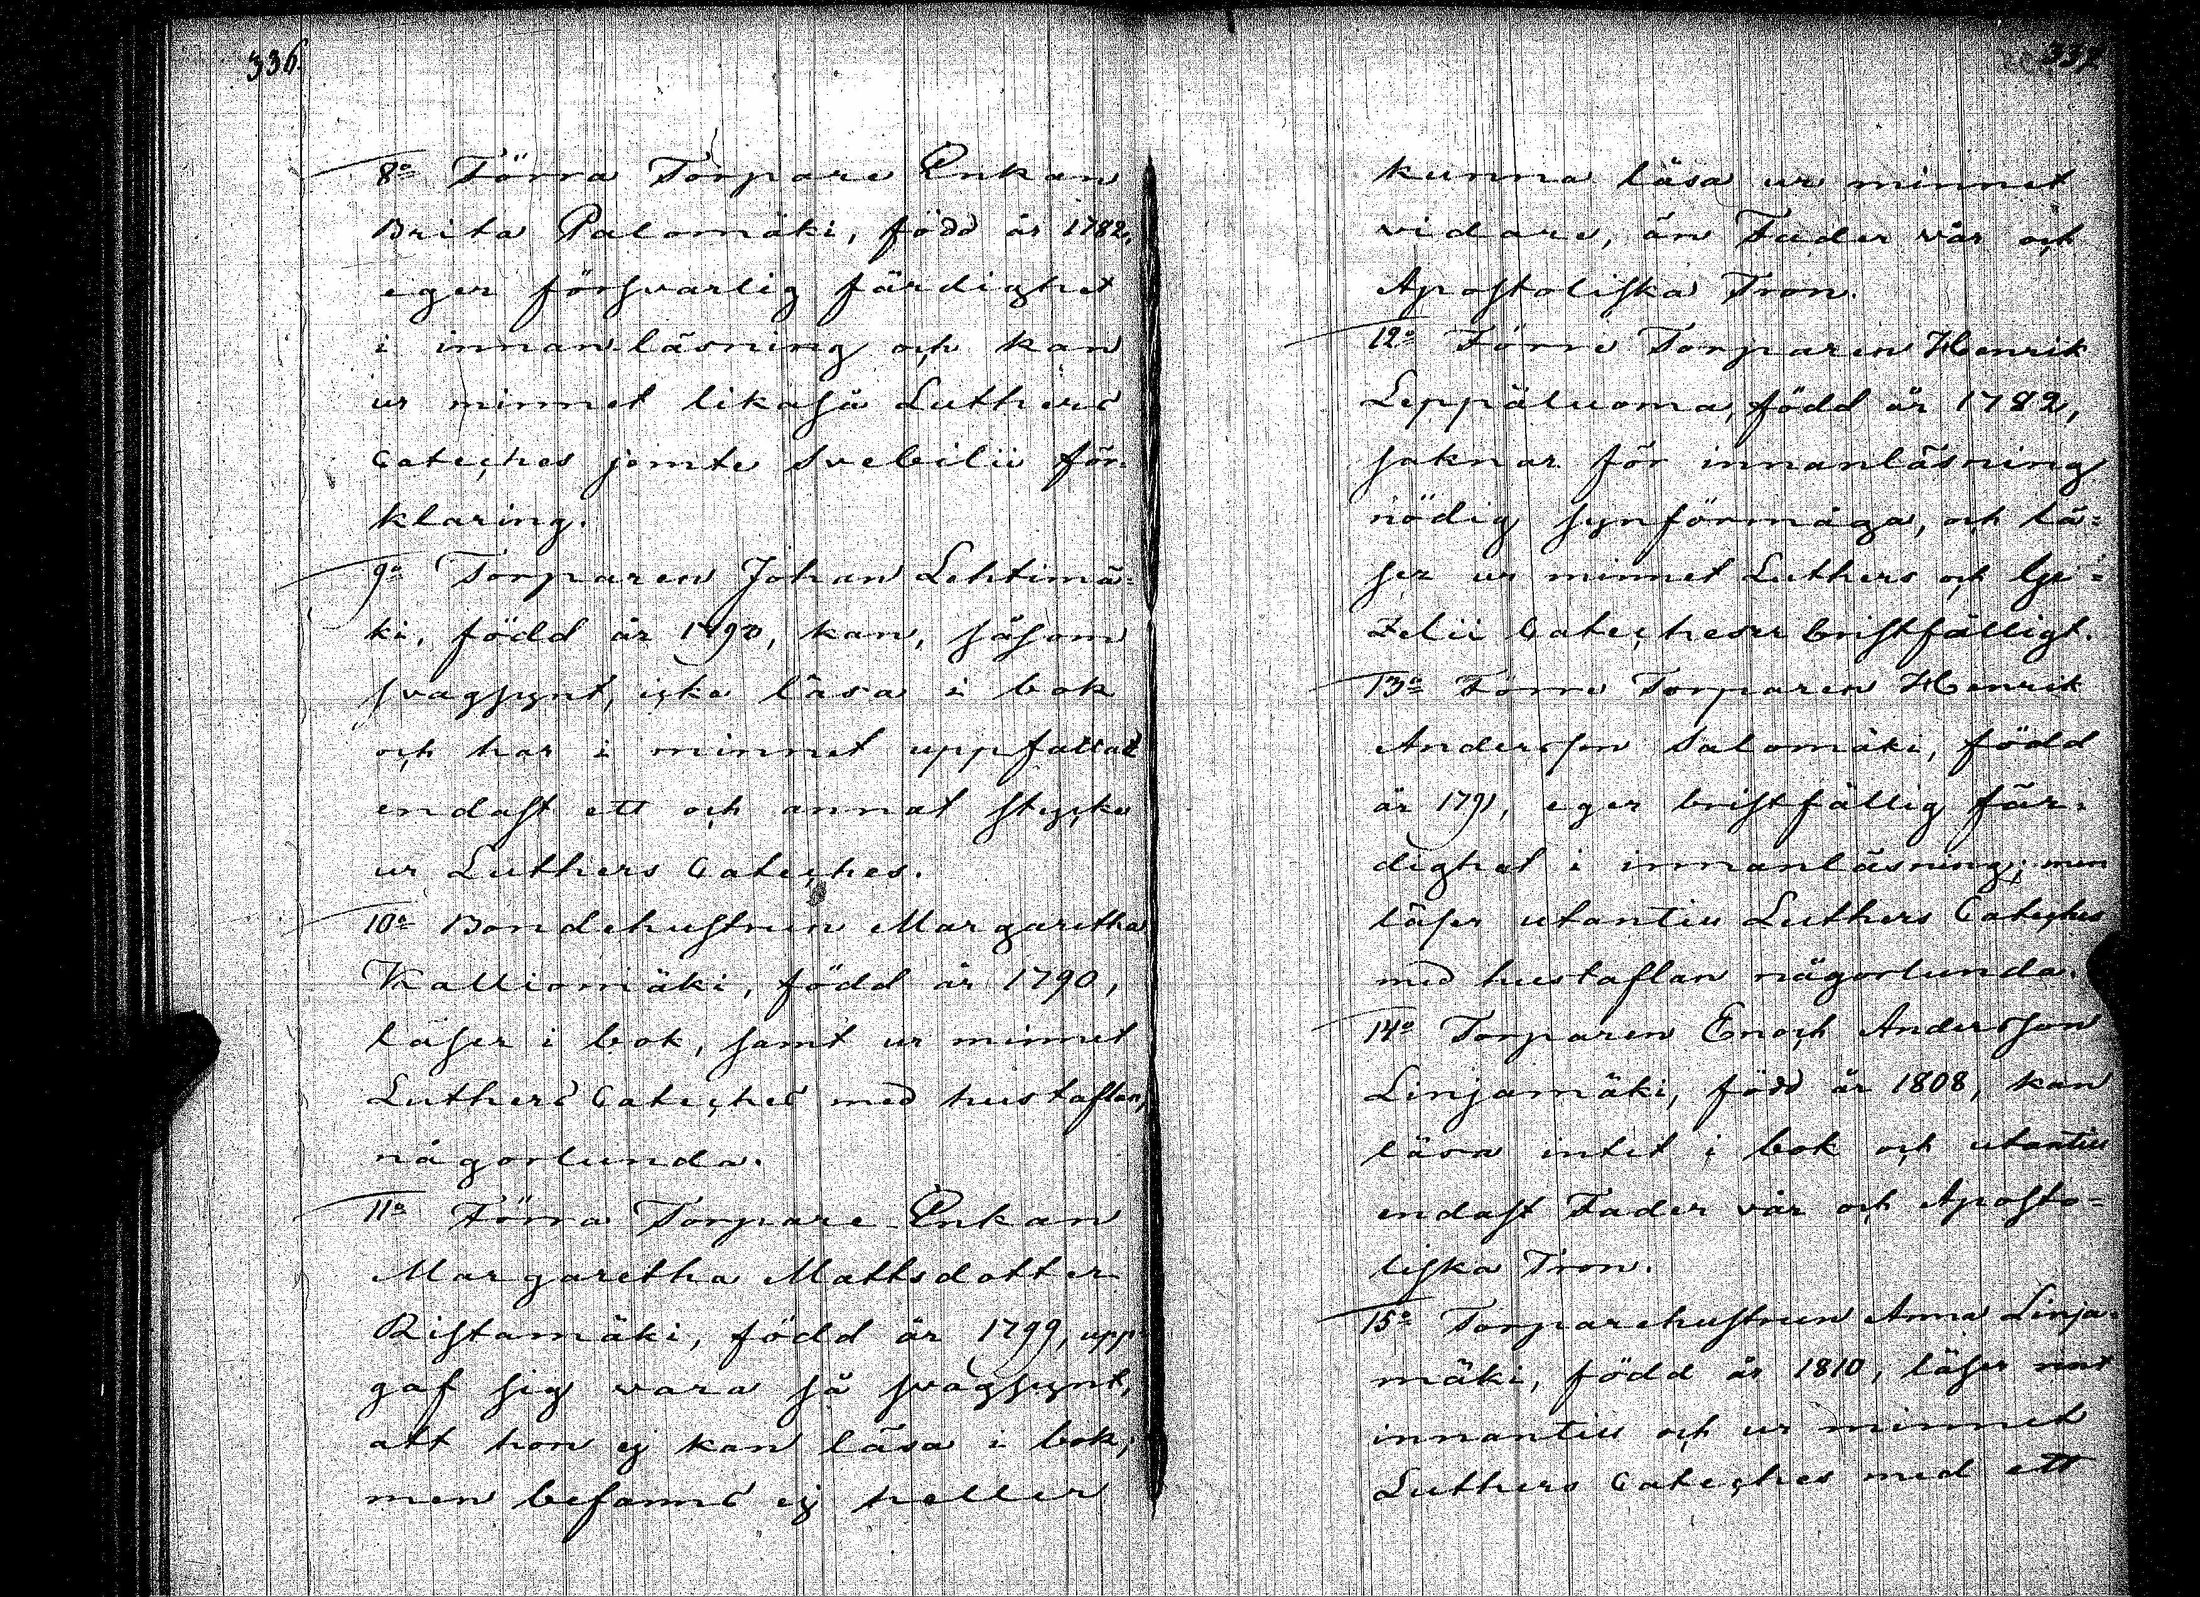 336.
8o Förra Torpare Enkan
Brita Palomäki, född år 1782.
eger försvarlig färdighet
i innanläsning och kan
ur minnet likaså Luthers
Cateches jemte Svebilii för-
klaring.
9o Torparen Johan Lehtimä-
ki, född år 1790, kan, såsom
svagsynt, icke läsa i bok
och har i minnet uppfattat
endast ett och annat stycke
ur Luthers Cateches.
10o Bondehustrun Margaretha
Kalliomäki, född år 1790,
läser i bok, samt ur minnet
Luthers Cateches med hustaflan,
någorlunda.
11o Förra Torpare-Enkan
Margaretha Mattsdotter
Ristamäki, född år 1799, upp-
gaf sig vara så svagsynt,
att hon ej kan läsa i bok;
men befanns ej heller
337
kunna läsa ur minnet
vidare, än Fader vår och
Apostoliska Tron.
12o Förre Torparen Henrik
Leppäluoma, född år 1782,
saknar för innanläsning
nödig synförmåga, och lä=
ser ur minnet Luthers och Ge=
zelii Catecheser bristfälligt.
13o Förre Torparen Henrik
Andersson Salomäki, född
år 1791, eger bristfällig fär-
dighet i innanläsning; men
läser utantill Luthers Cateches
med hustaflan någorlunda.
14o Torparen Enoch Andersson
Linjamäki, född år 1808, kan
läsa intet i bok och utantill
endast Fader vår och Aposto=
liska Tron.
15o Torparehustrun Anna Linja-
mäki, född år 1810, läser rent
innantill och ur minnet
Luthers Cateches med ett